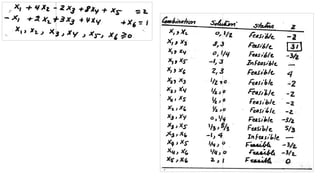 x₁ + 4x₂ - 2x₃ + 8x₄ + x₅ = 2
-x₁ + 2x₂ + 3x₃ + 4x₄ + x₆ = 1
x₁, x₂, x₃, x₄, x₅, x₆ ≥ 0
Combination Solution Status Z
x₁, x₂ 0, 1/2 Feasible -2
x₁, x₃ 8, 3 Feasible 31
x₁, x₄ 0, 1/4 Feasible -3/2
x₁, x₅ -1, 3 Infeasible —
x₁, x₆ 2, 3 Feasible 4
x₂, x₃ 1/2, 0 Feasible -2
x₂, x₄ 1/2, 0 Feasible -2
x₂, x₅ 1/2, 0 Feasible -2
x₂, x₆ 1/2, 0 Feasible -2
x₃, x₄ 0, 1/4 Feasible -3/2
x₃, x₅ 1/3, 8/3 Feasible 5/3
x₃, x₆ -1, 4 Infeasible —
x₄, x₅ 1/4, 0 Feasible -3/2
x₄, x₆ 1/4, 0 Feasible -3/2
x₅, x₆ 2, 1 Feasible 0